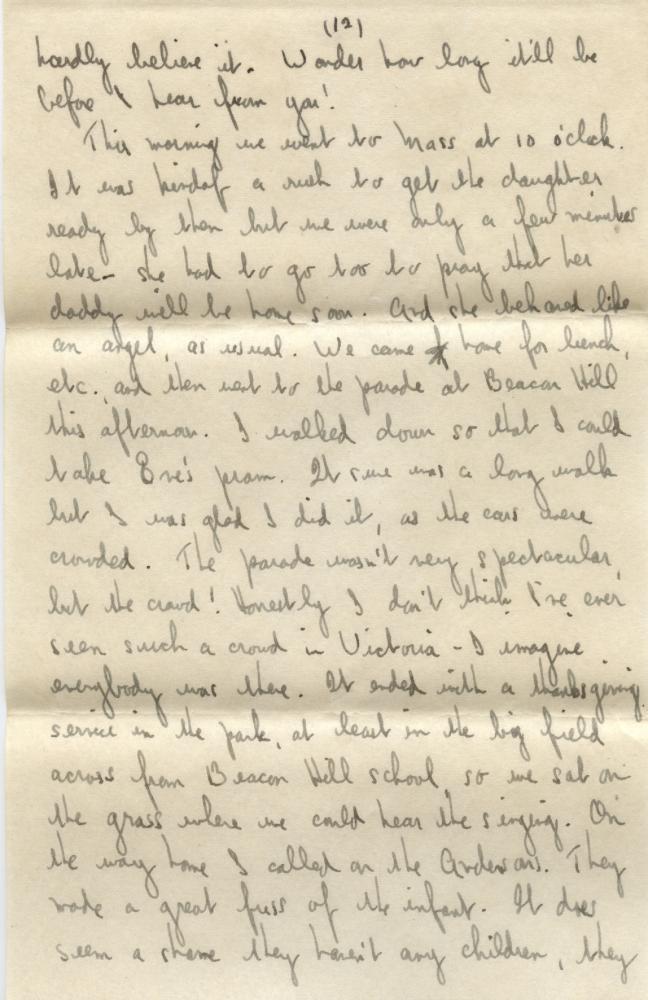 (12)
hardly believe it. Wonder how long it'll be
before I hear from you!
This morning we went to Mass at 10 o'clock.
It was kindof a rush to get the daughter
ready by then but we were only a few minutes
late - she had to go too to pray that her
daddy will be home soon. And she behaved like
an angel, as usual. We came home for lunch,
etc., and then went to the parade at Beacon Hill
this afternoon. I walked down so that I could
take Eve's pram. It sure was a long walk
but I was glad I did it, as the cars were
crowded. The parade wasn't very spectacular,
but the crowd! Honestly I don't think I've ever
seen such a crowd in Victoria - I imagine
everybody was there. It ended with a thanksgiving
service in the park, at least in the big field
across from Beacon Hill school, so we sat on
the grass where we could hear the singing. On
the way home I called on the Andersons. They
made a great fuss of the infant. It does
seem a shame they haven't any children, they